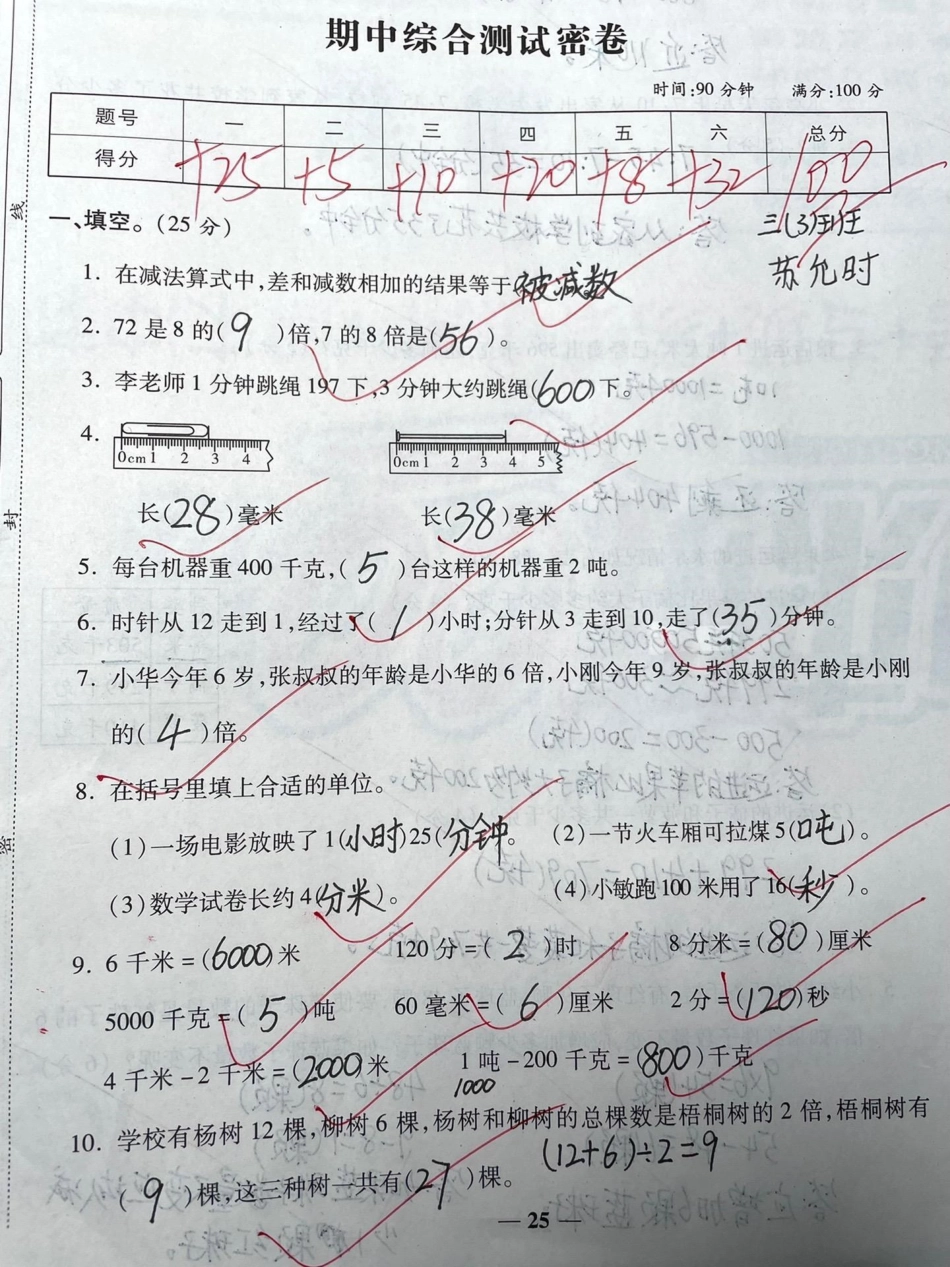 期中综合测试密卷
时间:90分钟 满分:100分
题号 一 二 三 四 五 六 总分
得分 +25 +5 +10 +20 +8 +32 100
一、填空。(25分)
三(3)班
苏允时
1. 在减法算式中,差和减数相加的结果等于(被减数
2. 72是8的(9)倍,7的8倍是(56)。
3. 李老师1分钟跳绳197下,3分钟大约跳绳(600)下。
4.
0cm 1 2 3 4
0cm 1 2 3 4 5
长(28)毫米 长(38)毫米
5. 每台机器重400千克,(5)台这样的机器重2吨。
6. 时针从12走到1,经过了(1)小时;分针从3走到10,走了(35)分钟。
7. 小华今年6岁,张叔叔的年龄是小华的6倍,小刚今年9岁,张叔叔的年龄是小刚
的(4)倍。
8. 在括号里填上合适的单位。
(1)一场电影放映了1(小时)25(分钟。 (2)一节火车厢可拉煤5(吨)。
(3)数学试卷长约4(分米)。 (4)小敏跑100米用了16(秒)。
9. 6千米=(6000)米 120分=(2)时 8分米=(80)厘米
5000千克=(5)吨 60毫米=(6)厘米 2分=(120)秒
4千米-2千米=(2000)米 1吨-200千克=(800)千克
1000
10. 学校有杨树12棵,柳树6棵,杨树和柳树的总棵数是梧桐树的2倍,梧桐树有
(12+6)÷2=9
(9)棵,这三种树一共有(27)棵。
— 25 —
线
封
密